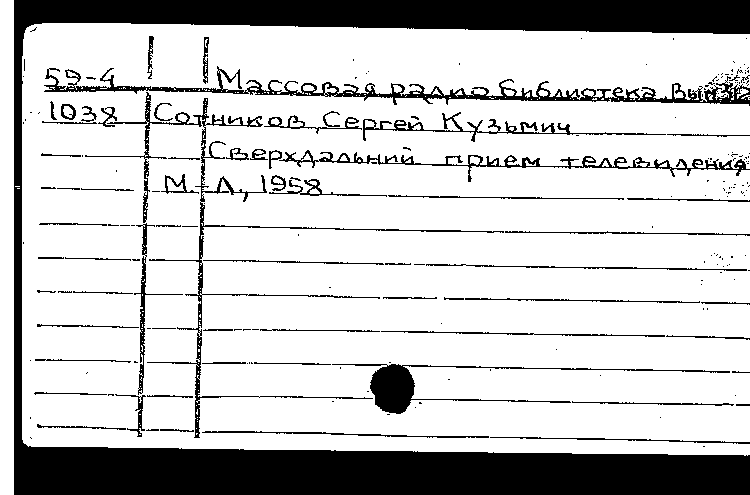 59-4 Массовая радио библиотека Вып.
1038 Сотников, Сергей Кузьмич
Сверхдальний прием телевидения
М.-Л., 1958.